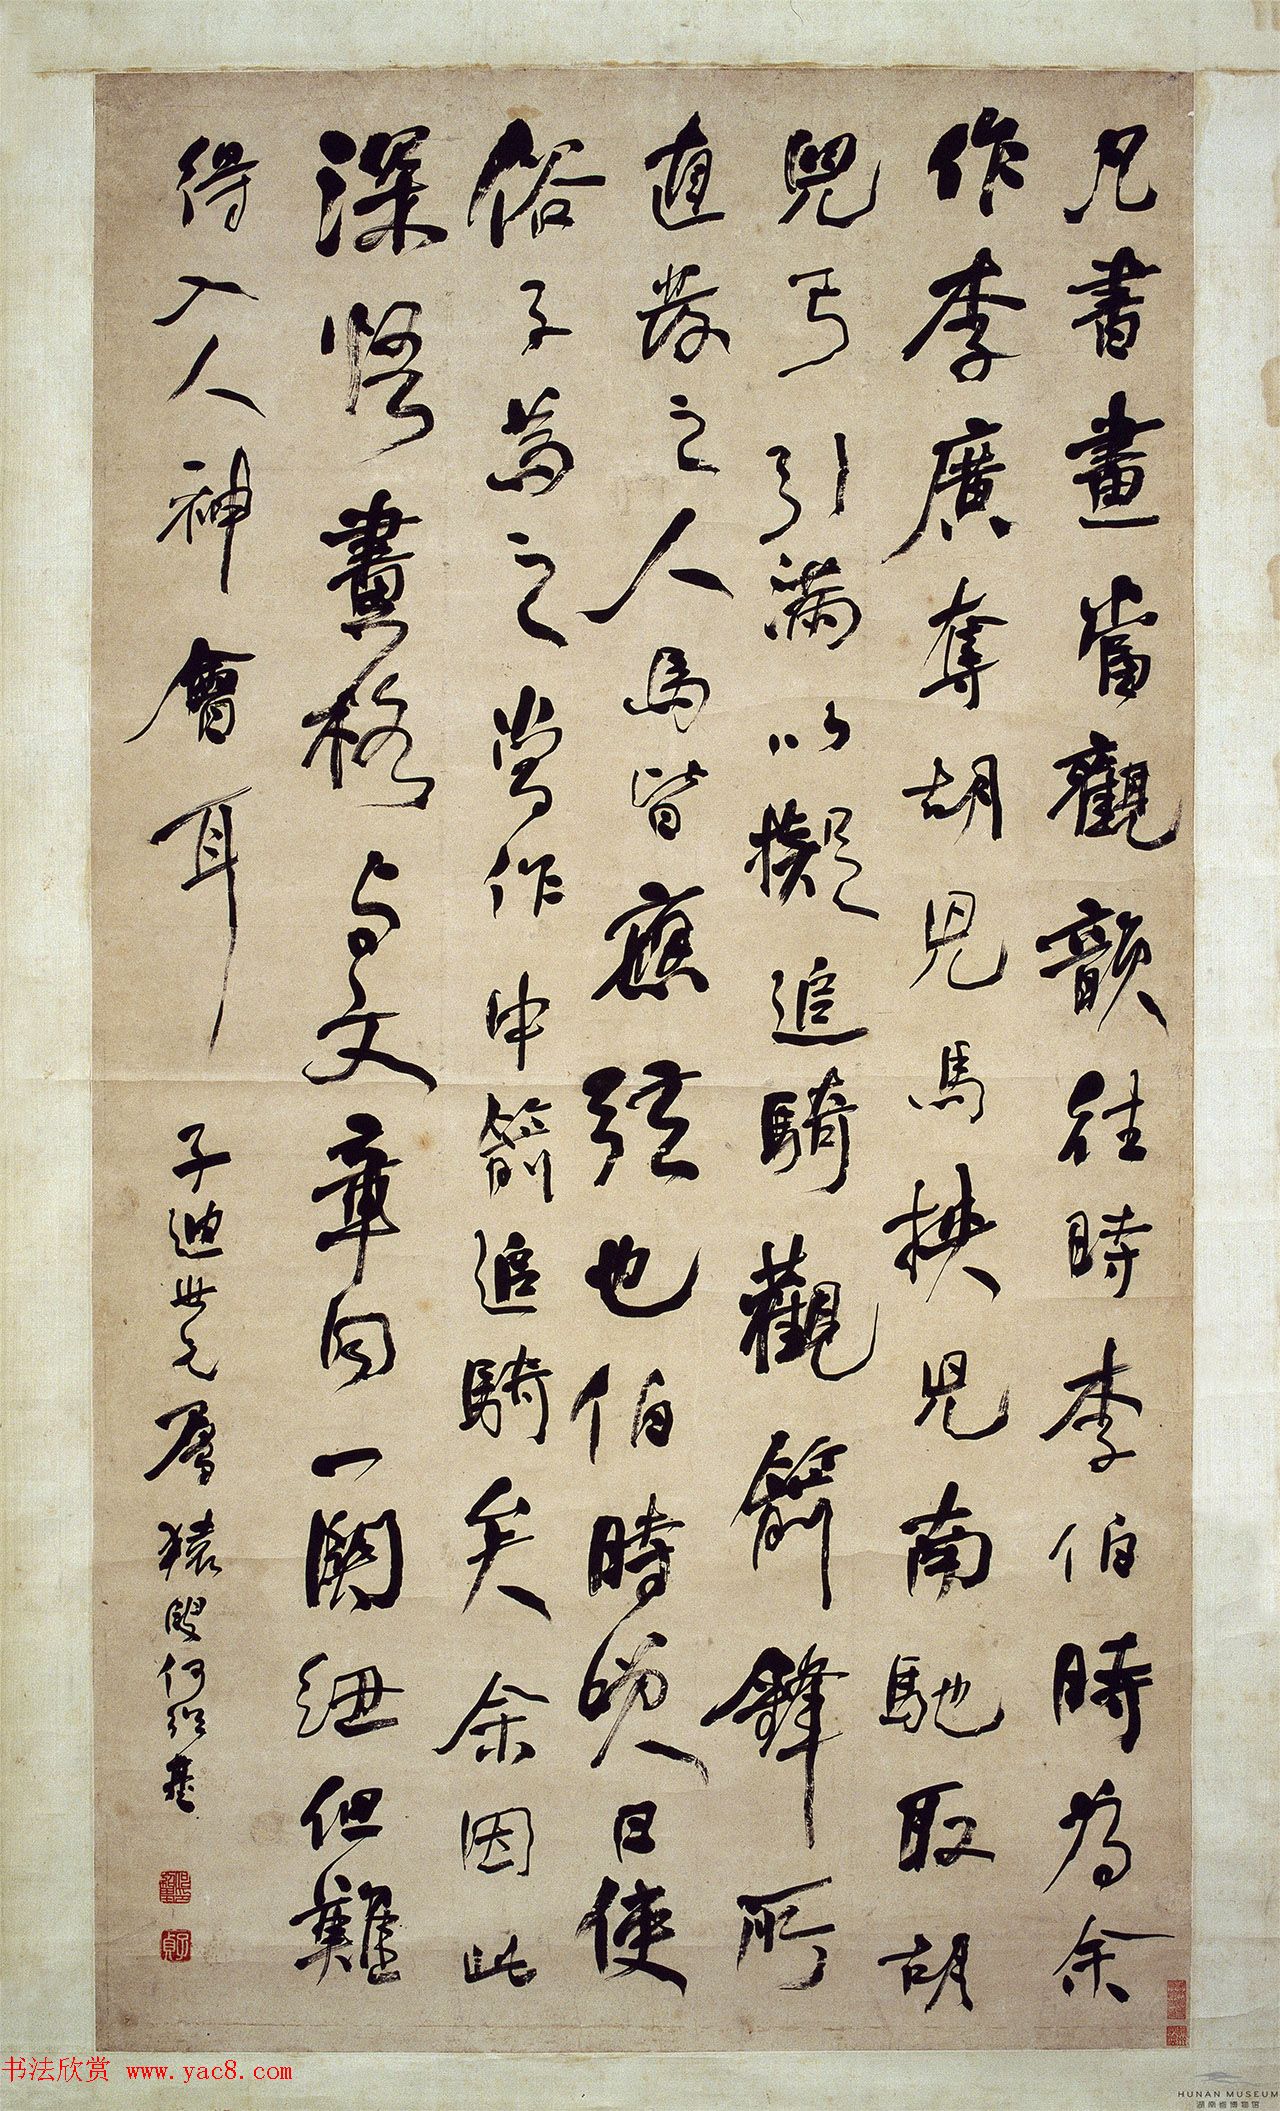 凡書畫當觀韻往時李伯時為余
作李廣奪胡兒馬挾兒南馳取胡
兒弓引滿以擬追騎觀箭鋒所
直發之人馬皆應弦也伯時笑曰使
俗子為之當作中箭追騎矣余因此
深悟畫格與文章同一關紐但難
得入人神會耳
子迪世兄屬 猿叟何紹基
书法欣赏 www.yac8.com
HUNAN MUSEUM
湖南省博物馆